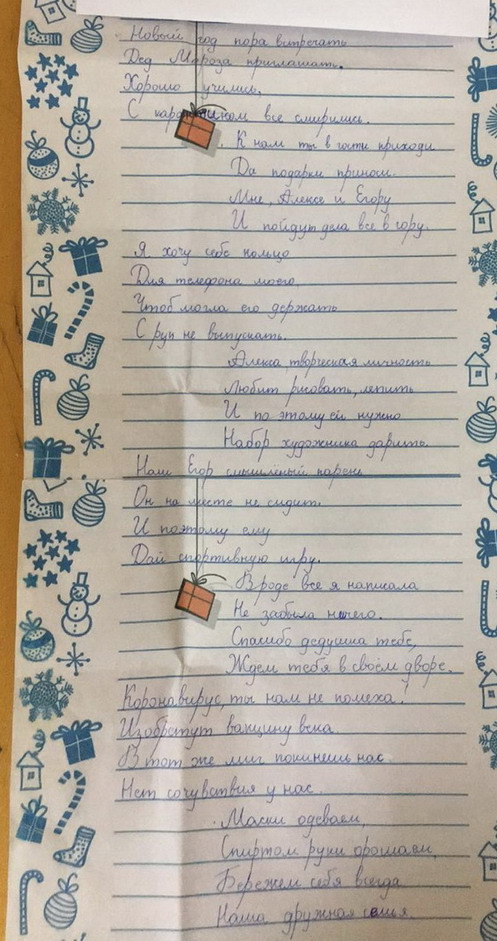 Новый год пора встречать
Дед Мороза приглашать.
Хорошо учились,
С карантином все смирились.
К нам ты в гости приходи
Да подарки приноси.
Мне, Алексе и Егору
И пойдут дела все в гору.
Я хочу себе кольцо
Для телефона моего,
Чтоб могла его держать
С рук не выпускать.
Алекса, творческая личность
Любит рисовать, лепить
И по этому ей нужно
Набор художника дарить.
Наш Егор смышлёный парень
Он на месте не сидит.
И поэтому ему
Дай спортивную игру.
Вроде все я написала
Не забыла ничего.
Спасибо дедушка тебе,
Ждем тебя в своём дворе.
Коронавирус, ты нам не помеха!
Изобретут вакцину века.
В тот же миг покинешь нас
Нет сочувствия у нас.
Маски одеваем,
Спиртом руки орошаем,
Бережем себя всегда
Наша дружная семья.